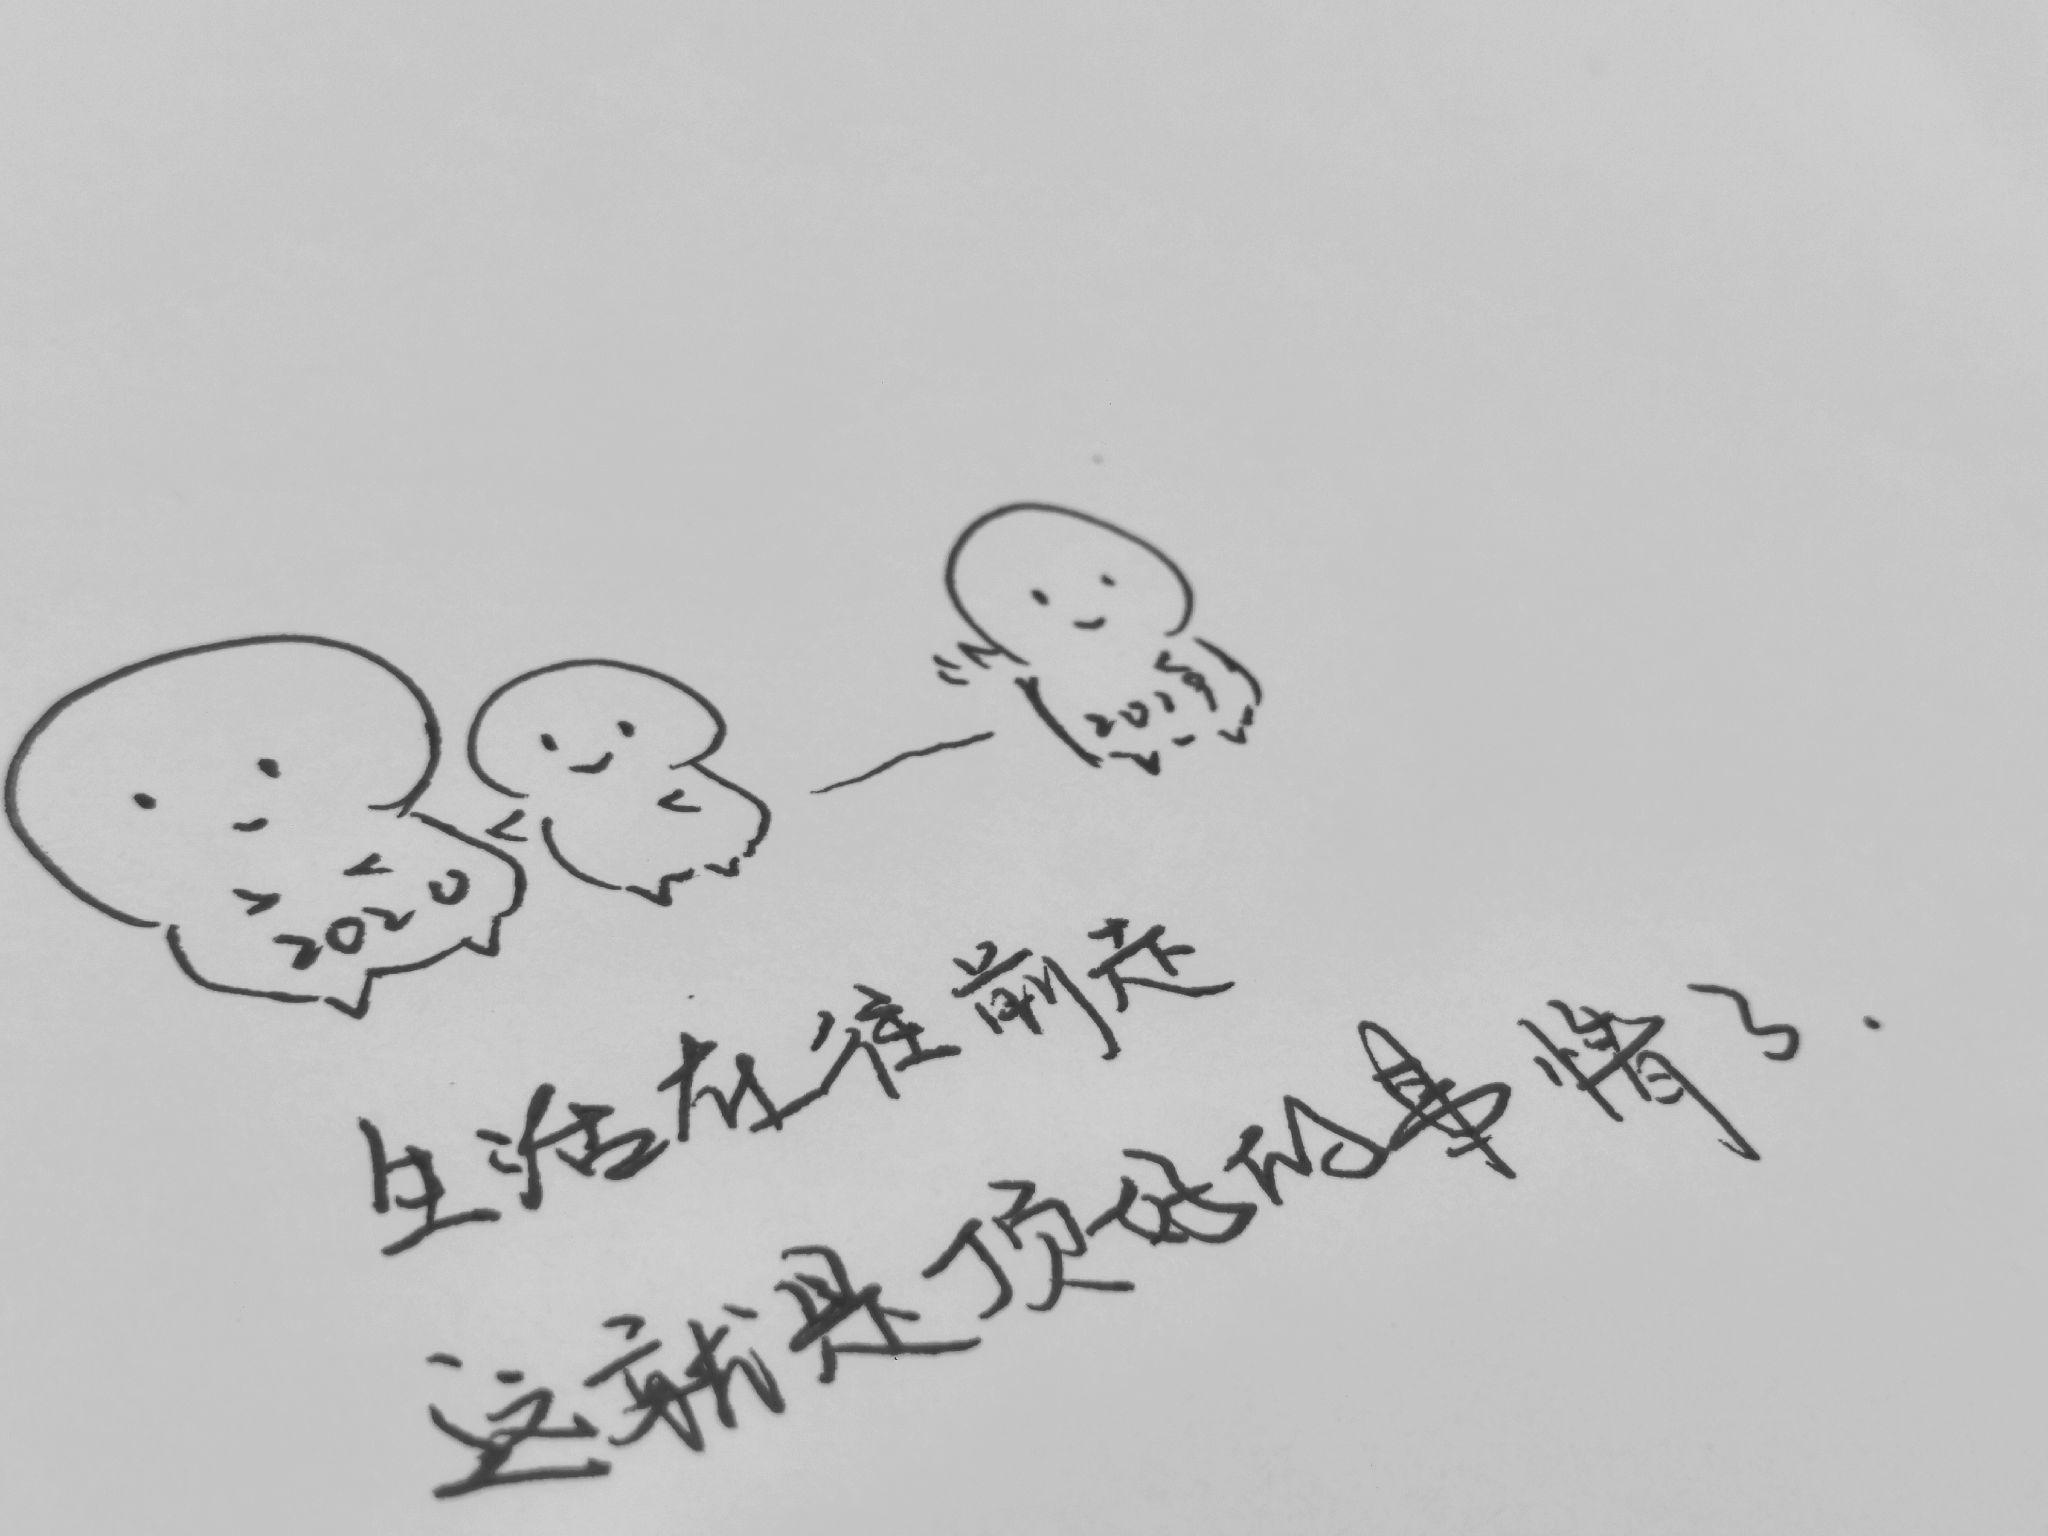 2020
2019
生活在往前走
这就是顶好的事情了.